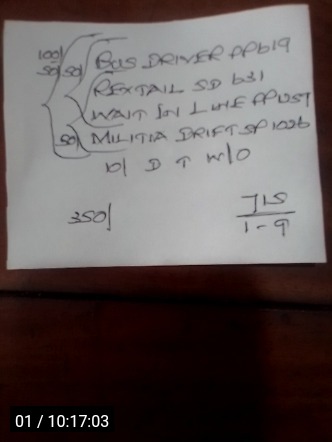 100/
50/ 50/ BUS DRIVER PP619
REXTAIL SD 631
WAIT IN LINE PP1257
50/ MILITIA DRIFT SP 1026
10/ D T W/O
350/ JIS
1-9
01 / 10:17:03